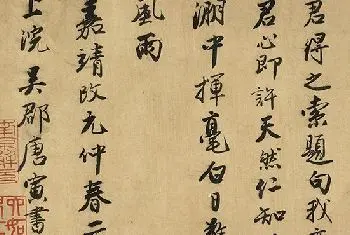 君得之索題句我
君心即許天然仁知
中揮毫白日
風雨
嘉靖改元仲春二
上浣吳郡唐寅書
六如